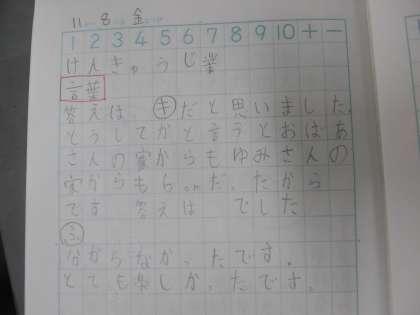 11 8 金
1 2 3 4 5 6 7 8 9 10 + −
けんきゅうじ業
言葉
答えは、㋖だと思いました。
どうしてかと言うとおばあ
さんの家からもゆみさんの
家からも6mだ。だから
です 答えは でした
㋫
分からなかったです。
とても楽しかったです。